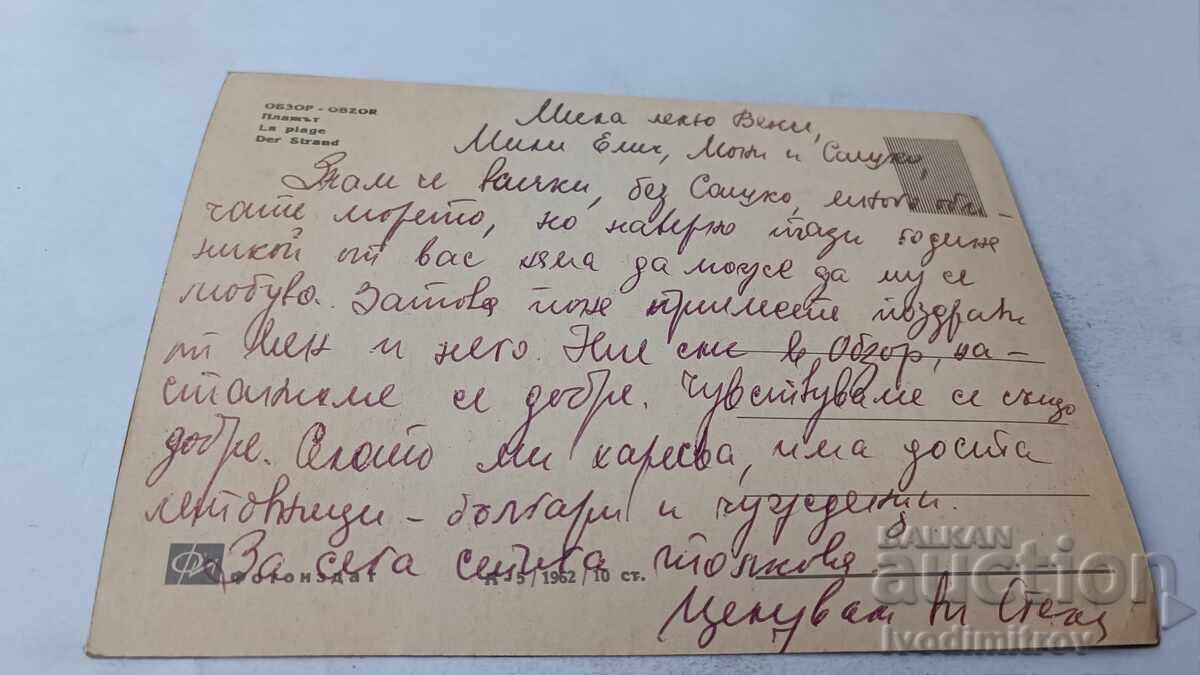 ОБЗОР - OBZOR
Плажът
La plage
Der Strand
Мила лельо Вени,
Мили Елич, Мони и Сашко,
Знам че всички, без Сашко, много оби-
чате морето, но наверно тази година
никой от вас няма да може да му се
любува. Затова поне приемете поздрави
от мен и него. Ние сме в Обзор, на-
станихме се добре. Чувствуваме се също
добре. Селото ми харесва, има доста
летовници - българи и чужденци.
За сега стига толкова
Фотоиздат
Д-5/1962/10 ст.
Целувам Ви Стела
BALKAN
auction
ivodimitrov